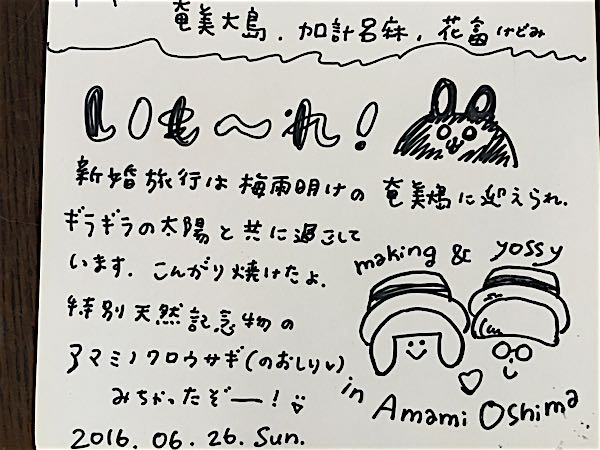 奄美大島、加計呂麻、花富けどみ
いも〜れ!
新婚旅行は梅雨明けの奄美大島に迎えられ、
ギラギラの太陽と共に過ごして
います。こんがり焼けたよ。
making & yossy
特別天然記念物の
アマミノクロウサギ(のおしり♡)
みちゃったぞー!
in Amami Oshima
2016.06.26.Sun.